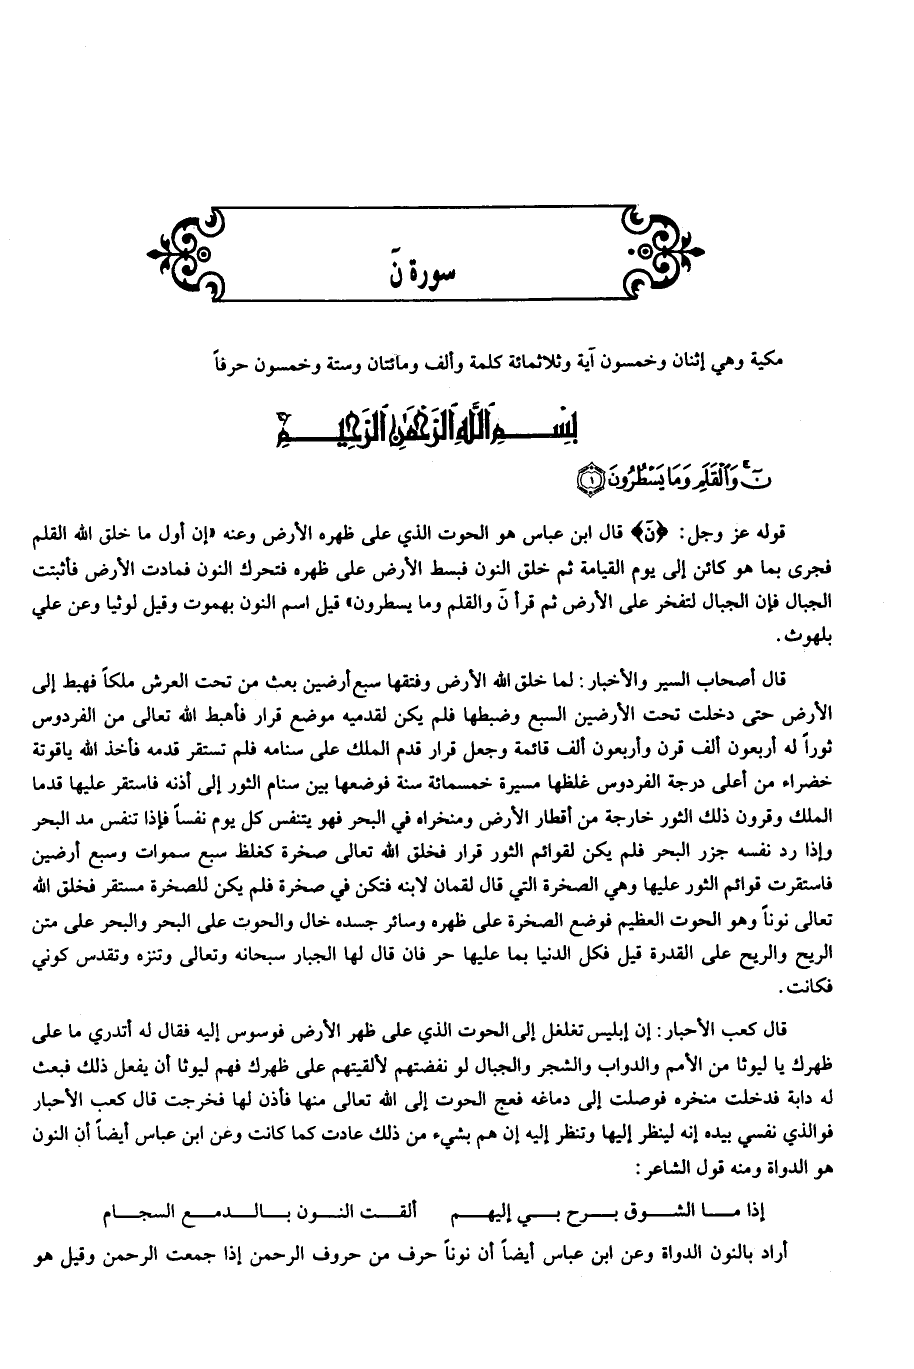 سورة نۤ
مكية وهي إثنان وخمسون آية وثلاثمائة كلمة وألف ومائتان وستة وخمسون حرفاً
بِسْمِ اللَّهِ الرَّحْمَٰنِ الرَّحِيمِ
نٓ ۚ وَالْقَلَمِ وَمَا يَسْطُرُونَ ﴿١﴾
قوله عز وجل: ﴿نۤ﴾ قال ابن عباس هو الحوت الذي على ظهره الأرض وعنه «إن أول ما خلق الله القلم
فجرى بما هو كائن إلى يوم القيامة ثم خلق النون فبسط الأرض على ظهره فتحرك النون فمادت الأرض فأثبتت
الجبال فإن الجبال لتفخر على الأرض ثم قرأ نۤ والقلم وما يسطرون» قيل اسم النون بهموت وقيل لوثيا وعن علي
بلهوث.
قال أصحاب السير والأخبار: لما خلق الله الأرض وفتقها سبع أرضين بعث من تحت العرش ملكاً فهبط إلى
الأرض حتى دخلت تحت الأرضين السبع وضبطها فلم يكن لقدميه موضع قرار فأهبط الله تعالى من الفردوس
ثوراً له أربعون ألف قرن وأربعون ألف قائمة وجعل قرار قدم الملك على سنامه فلم تستقر قدمه فأخذ الله ياقوتة
خضراء من أعلى درجة الفردوس غلظها مسيرة خمسمائة سنة فوضعها بين سنام الثور إلى أذنه فاستقر عليها قدما
الملك وقرون ذلك الثور خارجة من أقطار الأرض ومنخراه في البحر فهو يتنفس كل يوم نفساً فإذا تنفس مد البحر
وإذا رد نفسه جزر البحر فلم يكن لقوائم الثور قرار فخلق الله تعالى صخرة كغلظ سبع سموات وسبع أرضين
فاستقرت قوائم الثور عليها وهي الصخرة التي قال لقمان لابنه فتكن في صخرة فلم يكن للصخرة مستقر فخلق الله
تعالى نوناً وهو الحوت العظيم فوضع الصخرة على ظهره وسائر جسده خال والحوت على البحر والبحر على متن
الريح والريح على القدرة قيل فكل الدنيا بما عليها حر فان قال لها الجبار سبحانه وتعالى وتنزه وتقدس كوني
فكانت.
قال كعب الأحبار: إن إبليس تغلغل إلى الحوت الذي على ظهر الأرض فوسوس إليه فقال له أتدري ما على
ظهرك يا ليوثا من الأمم والدواب والشجر والجبال لو نفضتهم لألقيتهم على ظهرك فهم ليوثا أن يفعل ذلك فبعث
له دابة فدخلت منخره فوصلت إلى دماغه فعج الحوت إلى الله تعالى منها فأذن لها فخرجت قال كعب الأحبار
فوالذي نفسي بيده إنه لينظر إليها وتنظر إليه إن هم بشيء من ذلك عادت كما كانت وعن ابن عباس أيضاً أن النون
هو الدواة ومنه قول الشاعر:
إذا ما الشوق برح بي إليهم ألقت النون بالدمع السجام
أراد بالنون الدواة وعن ابن عباس أيضاً أن نوناً حرف من حروف الرحمن إذا جمعت الرحمن وقيل هو